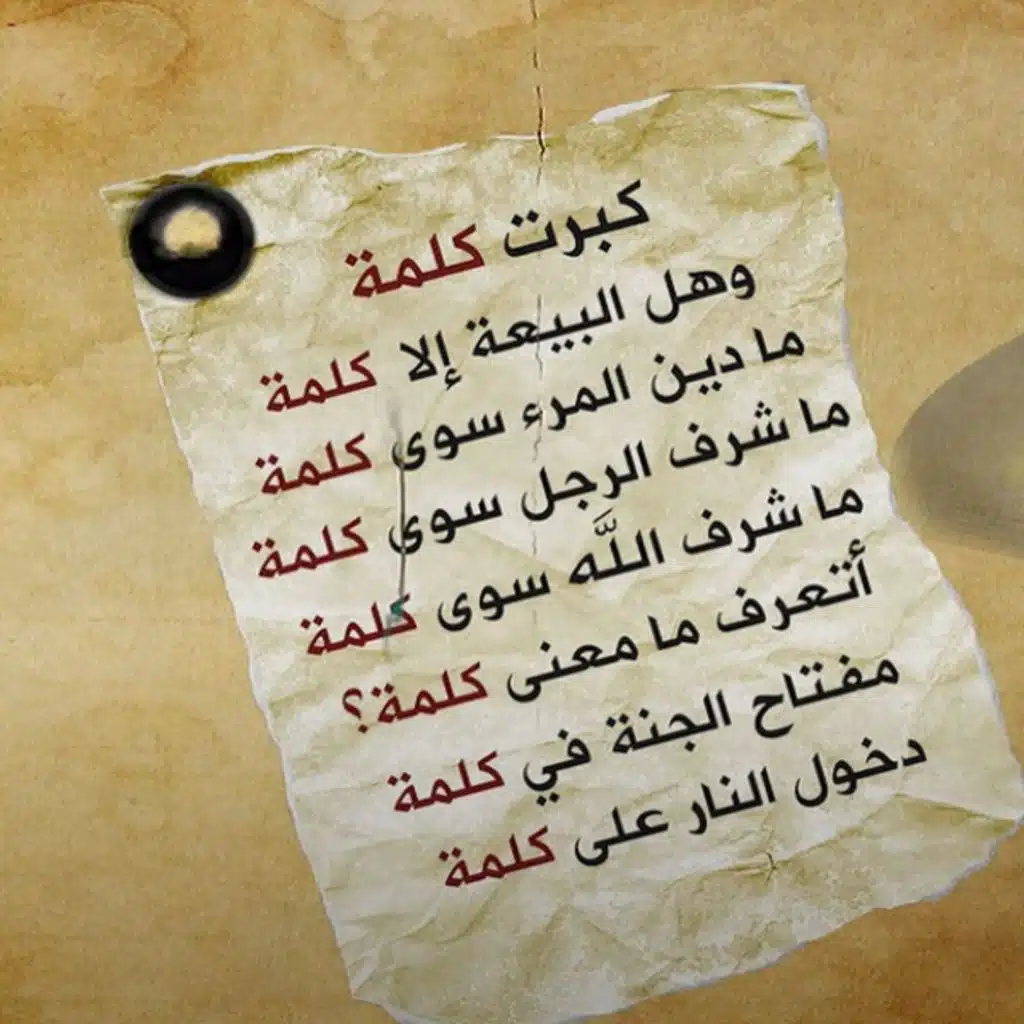 كبرت كلمة
وهل البيعة إلا كلمة
ما دين المرء سوى كلمة
ما شرف الرجل سوى كلمة
ما شرف اللَّه سوى كلمة
أتعرف ما معنى كلمة؟
مفتاح الجنة في كلمة
دخول النار على كلمة